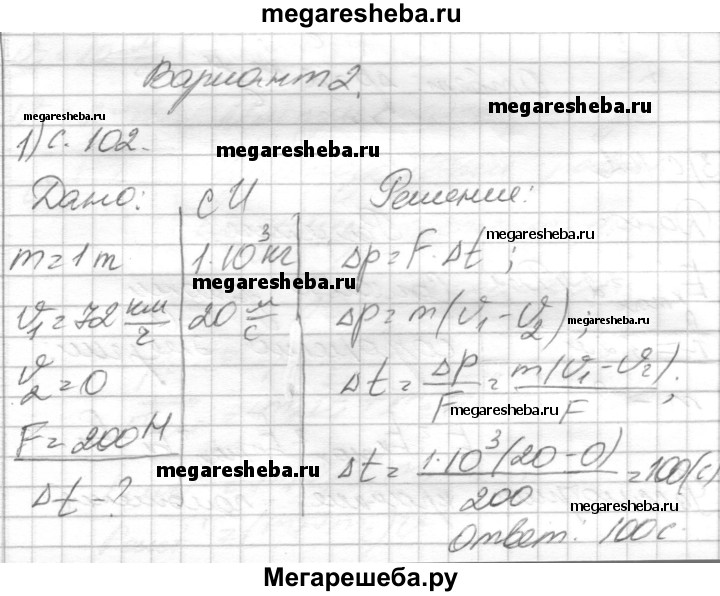 megaresheba.ru
Вариант 2.
megaresheba.ru
megaresheba.ru
1) с. 102.
megaresheba.ru
Дано: СИ Решение:
megaresheba.ru
m = 1 т 1·10³ кг Δp = F·Δt;
megaresheba.ru
υ₁ = 72 км/ч 20 м/с Δp = m(υ₁ - υ₂);
megaresheba.ru
υ₂ = 0 Δt = Δp/F = m(υ₁ - υ₂)/F;
megaresheba.ru
F = 200 Н Δt = 1·10³(20-0)/200 = 100(с)
megaresheba.ru
Δt - ?
megaresheba.ru
Ответ: 100с.
Мегарешеба.ру